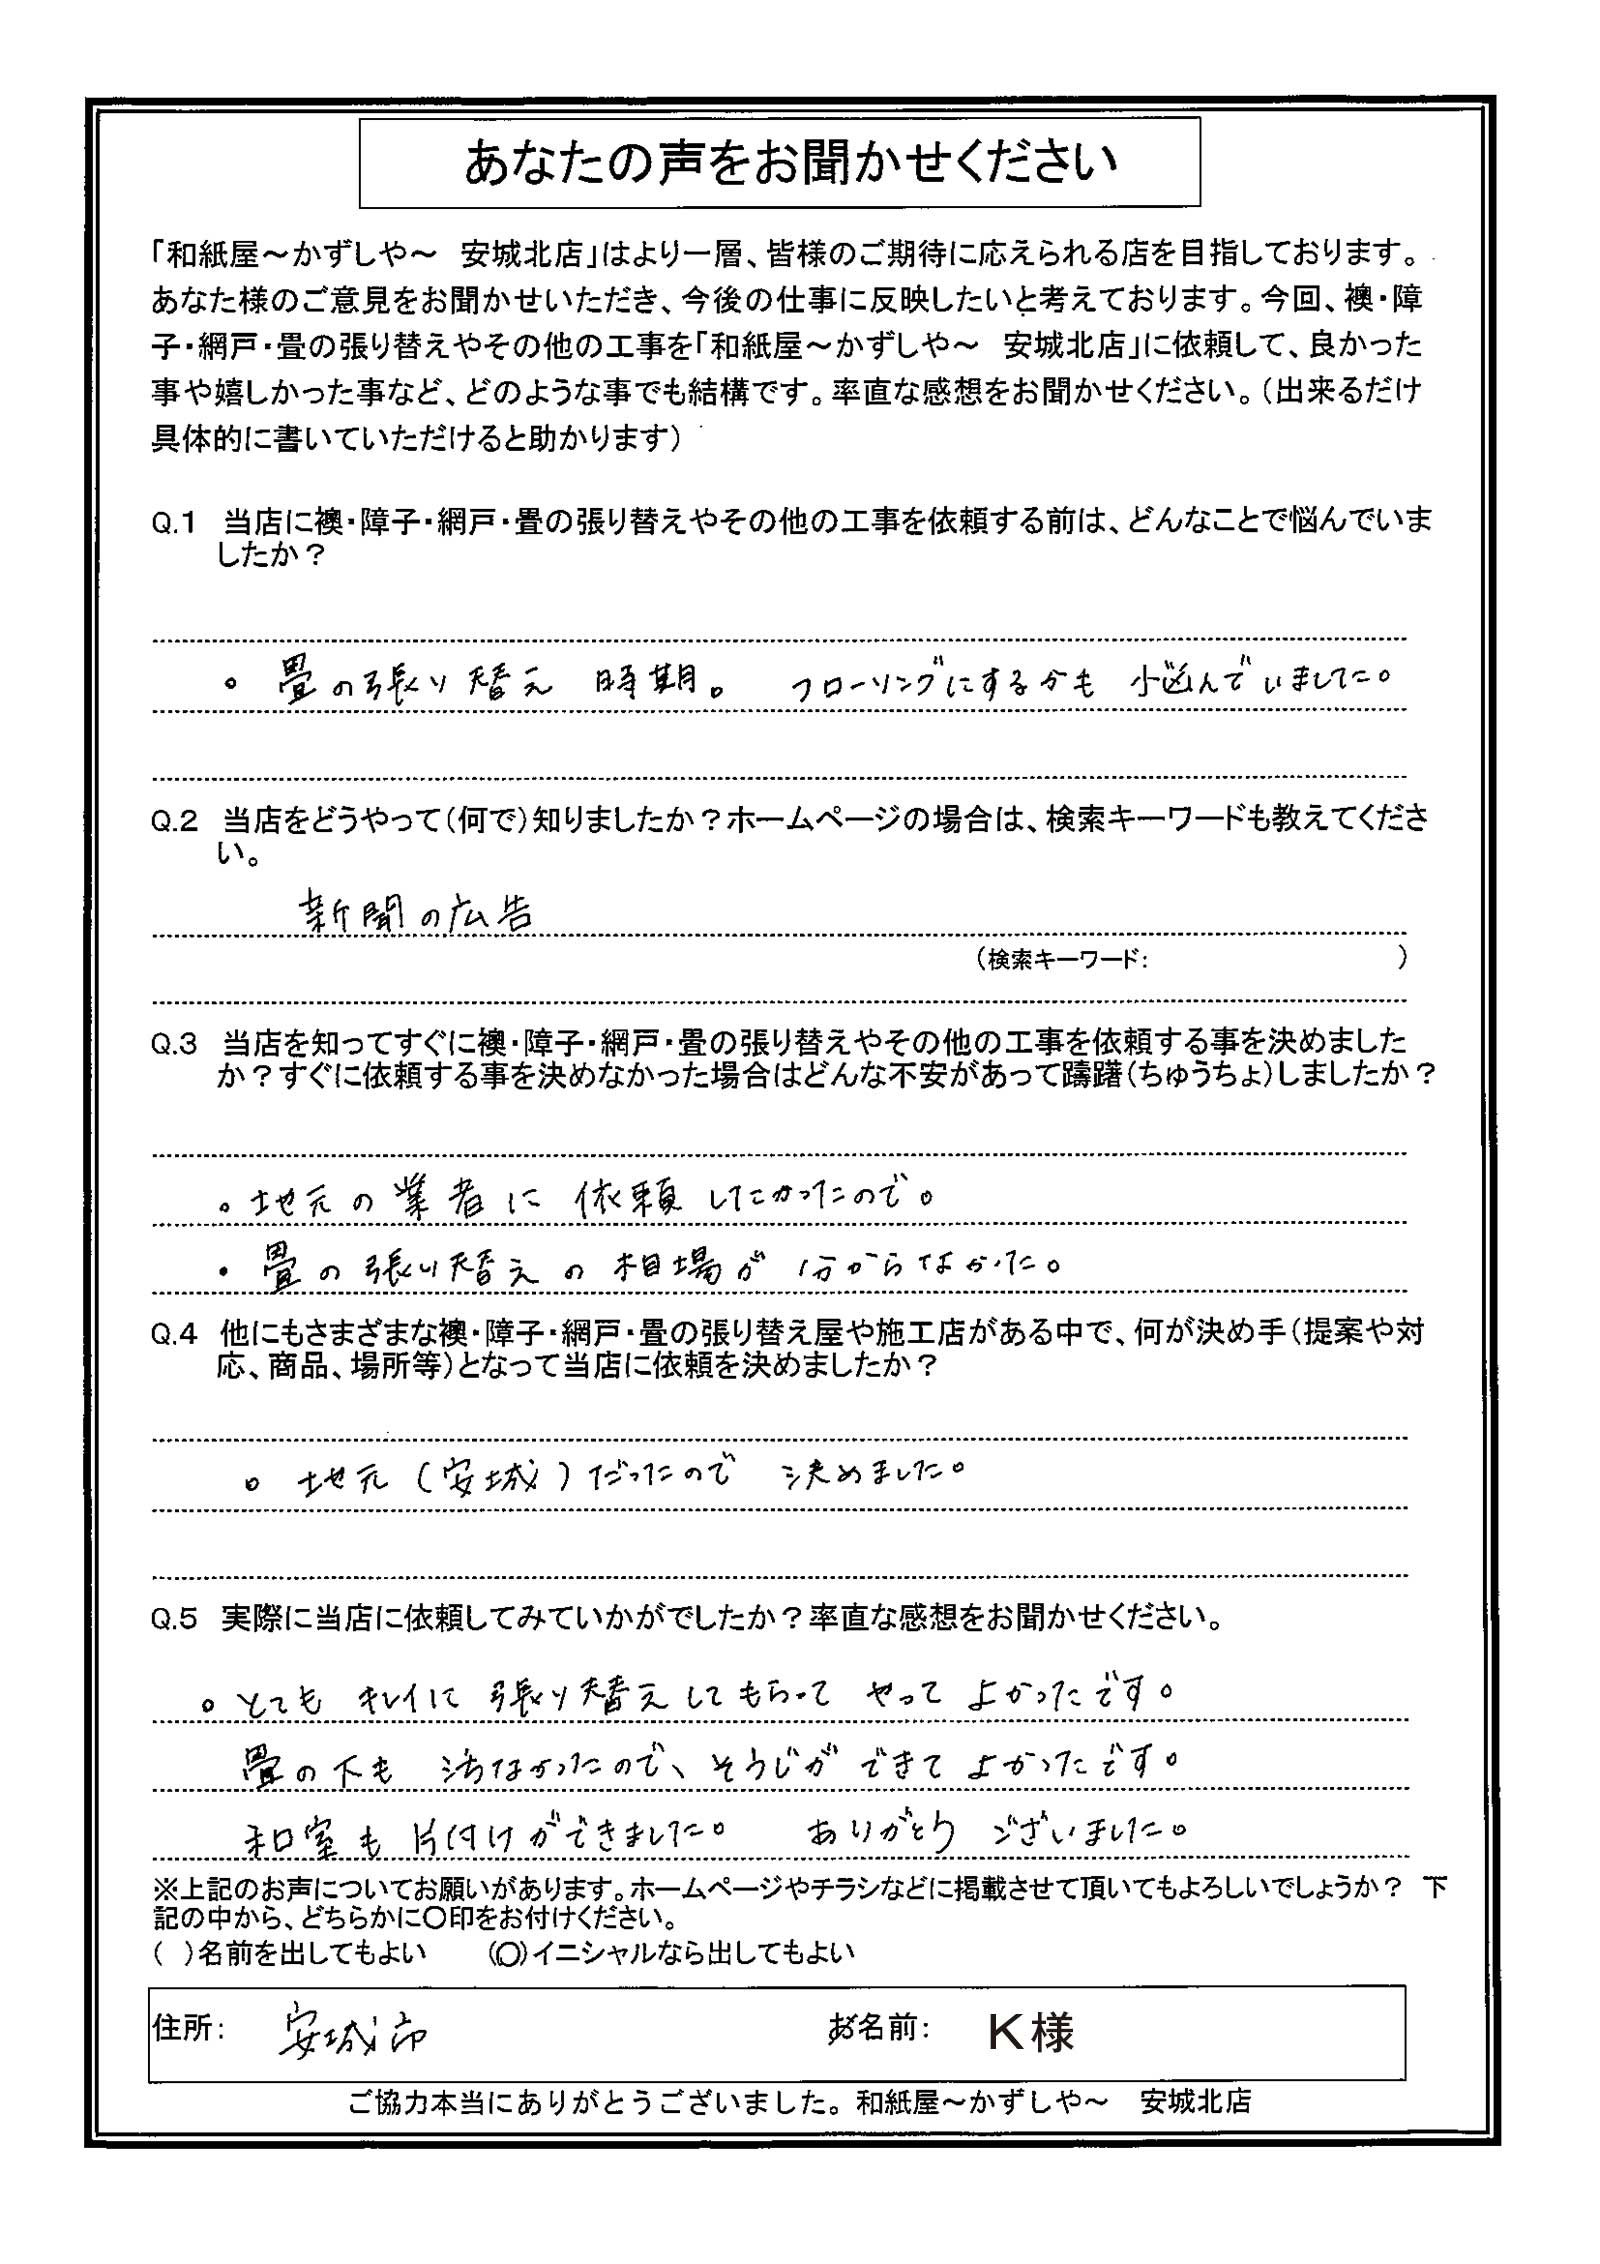 あなたの声をお聞かせください
「和紙屋～かずしや～　安城北店」はより一層、皆様のご期待に応えられる店を目指しております。
あなた様のご意見をお聞かせいただき、今後の仕事に反映したいと考えております。今回、襖・障
子・網戸・畳の張り替えやその他の工事を「和紙屋～かずしや～　安城北店」に依頼して、良かった
事や嬉しかった事など、どのような事でも結構です。率直な感想をお聞かせください。（出来るだけ
具体的に書いていただけると助かります）
Q.1　当店に襖・障子・網戸・畳の張り替えやその他の工事を依頼する前は、どんなことで悩んでいま
したか？
。畳の張り替え 時期。　フローリングにするかも 悩んでいました。
Q.2　当店をどうやって（何で）知りましたか？ホームページの場合は、検索キーワードも教えてくださ
い。
新聞の広告
（検索キーワード：　　　　　　）
Q.3　当店を知ってすぐに襖・障子・網戸・畳の張り替えやその他の工事を依頼する事を決めました
か？すぐに依頼する事を決めなかった場合はどんな不安があって躊躇（ちゅうちょ）しましたか？
。地元の業者に 依頼 したかったので。
・畳の張り替えの相場が 分からなかった。
Q.4　他にもさまざまな襖・障子・網戸・畳の張り替え屋や施工店がある中で、何が決め手（提案や対
応、商品、場所等）となって当店に依頼を決めましたか？
。地元（安城）だったので　決めました。
Q.5　実際に当店に依頼してみていかがでしたか？率直な感想をお聞かせください。
。とても キレイに 張り替えしてもらって やって よかったです。
畳の下も 汚なかったので、そうじが できて よかったです。
和室も 片付けができました。　ありがとう ございました。
※上記のお声についてお願いがあります。ホームページやチラシなどに掲載させて頂いてもよろしいでしょうか？　下
記の中から、どちらかに〇印をお付けください。
（　）名前を出してもよい　　（〇）イニシャルなら出してもよい
住所：　安城市　　お名前：　K様
ご協力本当にありがとうございました。和紙屋～かずしや～　安城北店